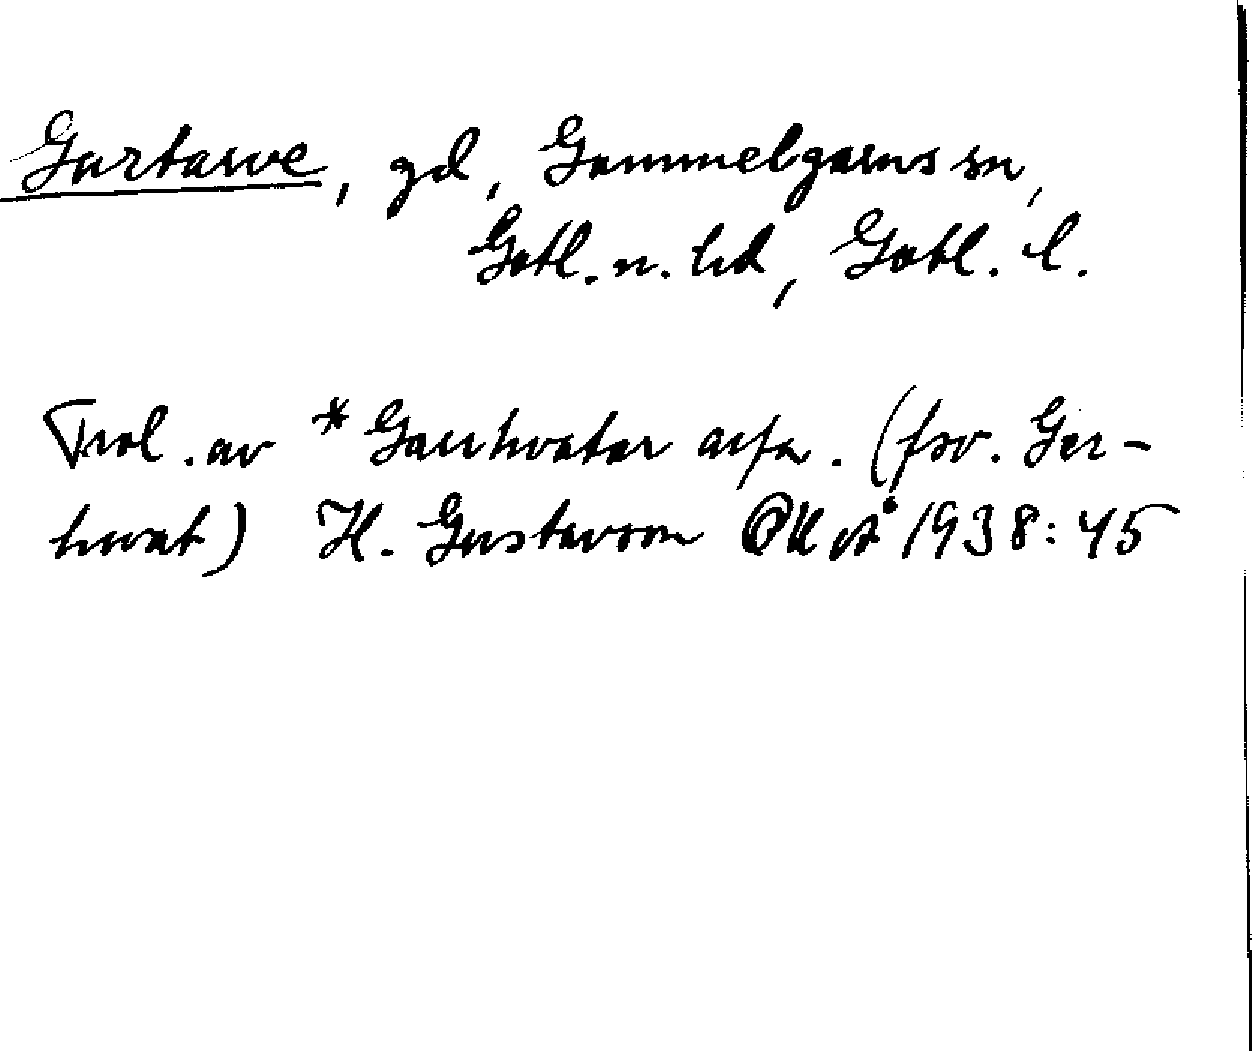 Gartarve, gd, Gammelgarns sn,
Gotl. n. hd, Gotl. l.
Trol. av *Gairhvatar arfa. (fsv. Ger-
hvat) H. Gustavson 1938:45